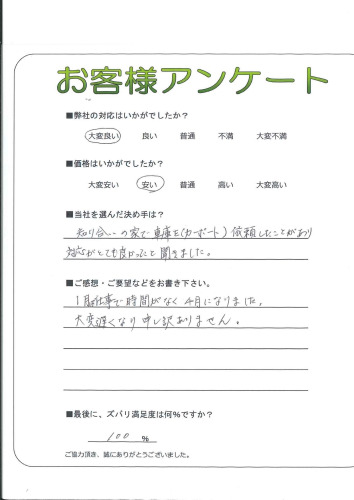 お客様アンケート
■弊社の対応はいかがでしたか?
大変良い 良い 普通 不満 大変不満
■価格はいかがでしたか?
大変安い 安い 普通 高い 大変高い
■当社を選んだ決め手は?
知り合いの家で車庫を(カーポート)依頼したことがあり
対応がとても良かったと聞きました。
■ご感想・ご要望などをお書き下さい。
仕事で時間がなく4月になりました。
大変遅くなり申し訳ありません。
■最後に、ズバリ満足度は何%ですか?
100 %
ご協力頂き、誠にありがとうございました。